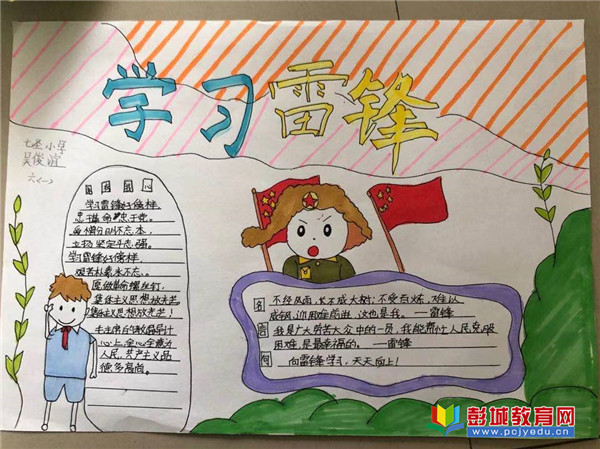 学习雷锋
七圣小学
吴俊
六(一)
学习雷锋好榜样,
忠于革命忠于党。
爱憎分明不忘本,
立场坚定斗志强。
学习雷锋好榜样,
艰苦朴素永不忘。
愿做革命螺丝钉,
集体主义思想放光芒,
集体主义思想放光芒!
毛主席的教导记
心上,全心全意为
人民,共产主义品
德多高尚。
名
言
不经风雨,长不成大树;不受百炼,难以
成钢。迎着困难前进,这也是我。——雷锋
我是广大劳苦大众中的一员,我能帮忙人民克服
困难,是最幸福的。——雷锋
向雷锋学习,天天向上!
彭城教育网
www.pcjyedu.cn